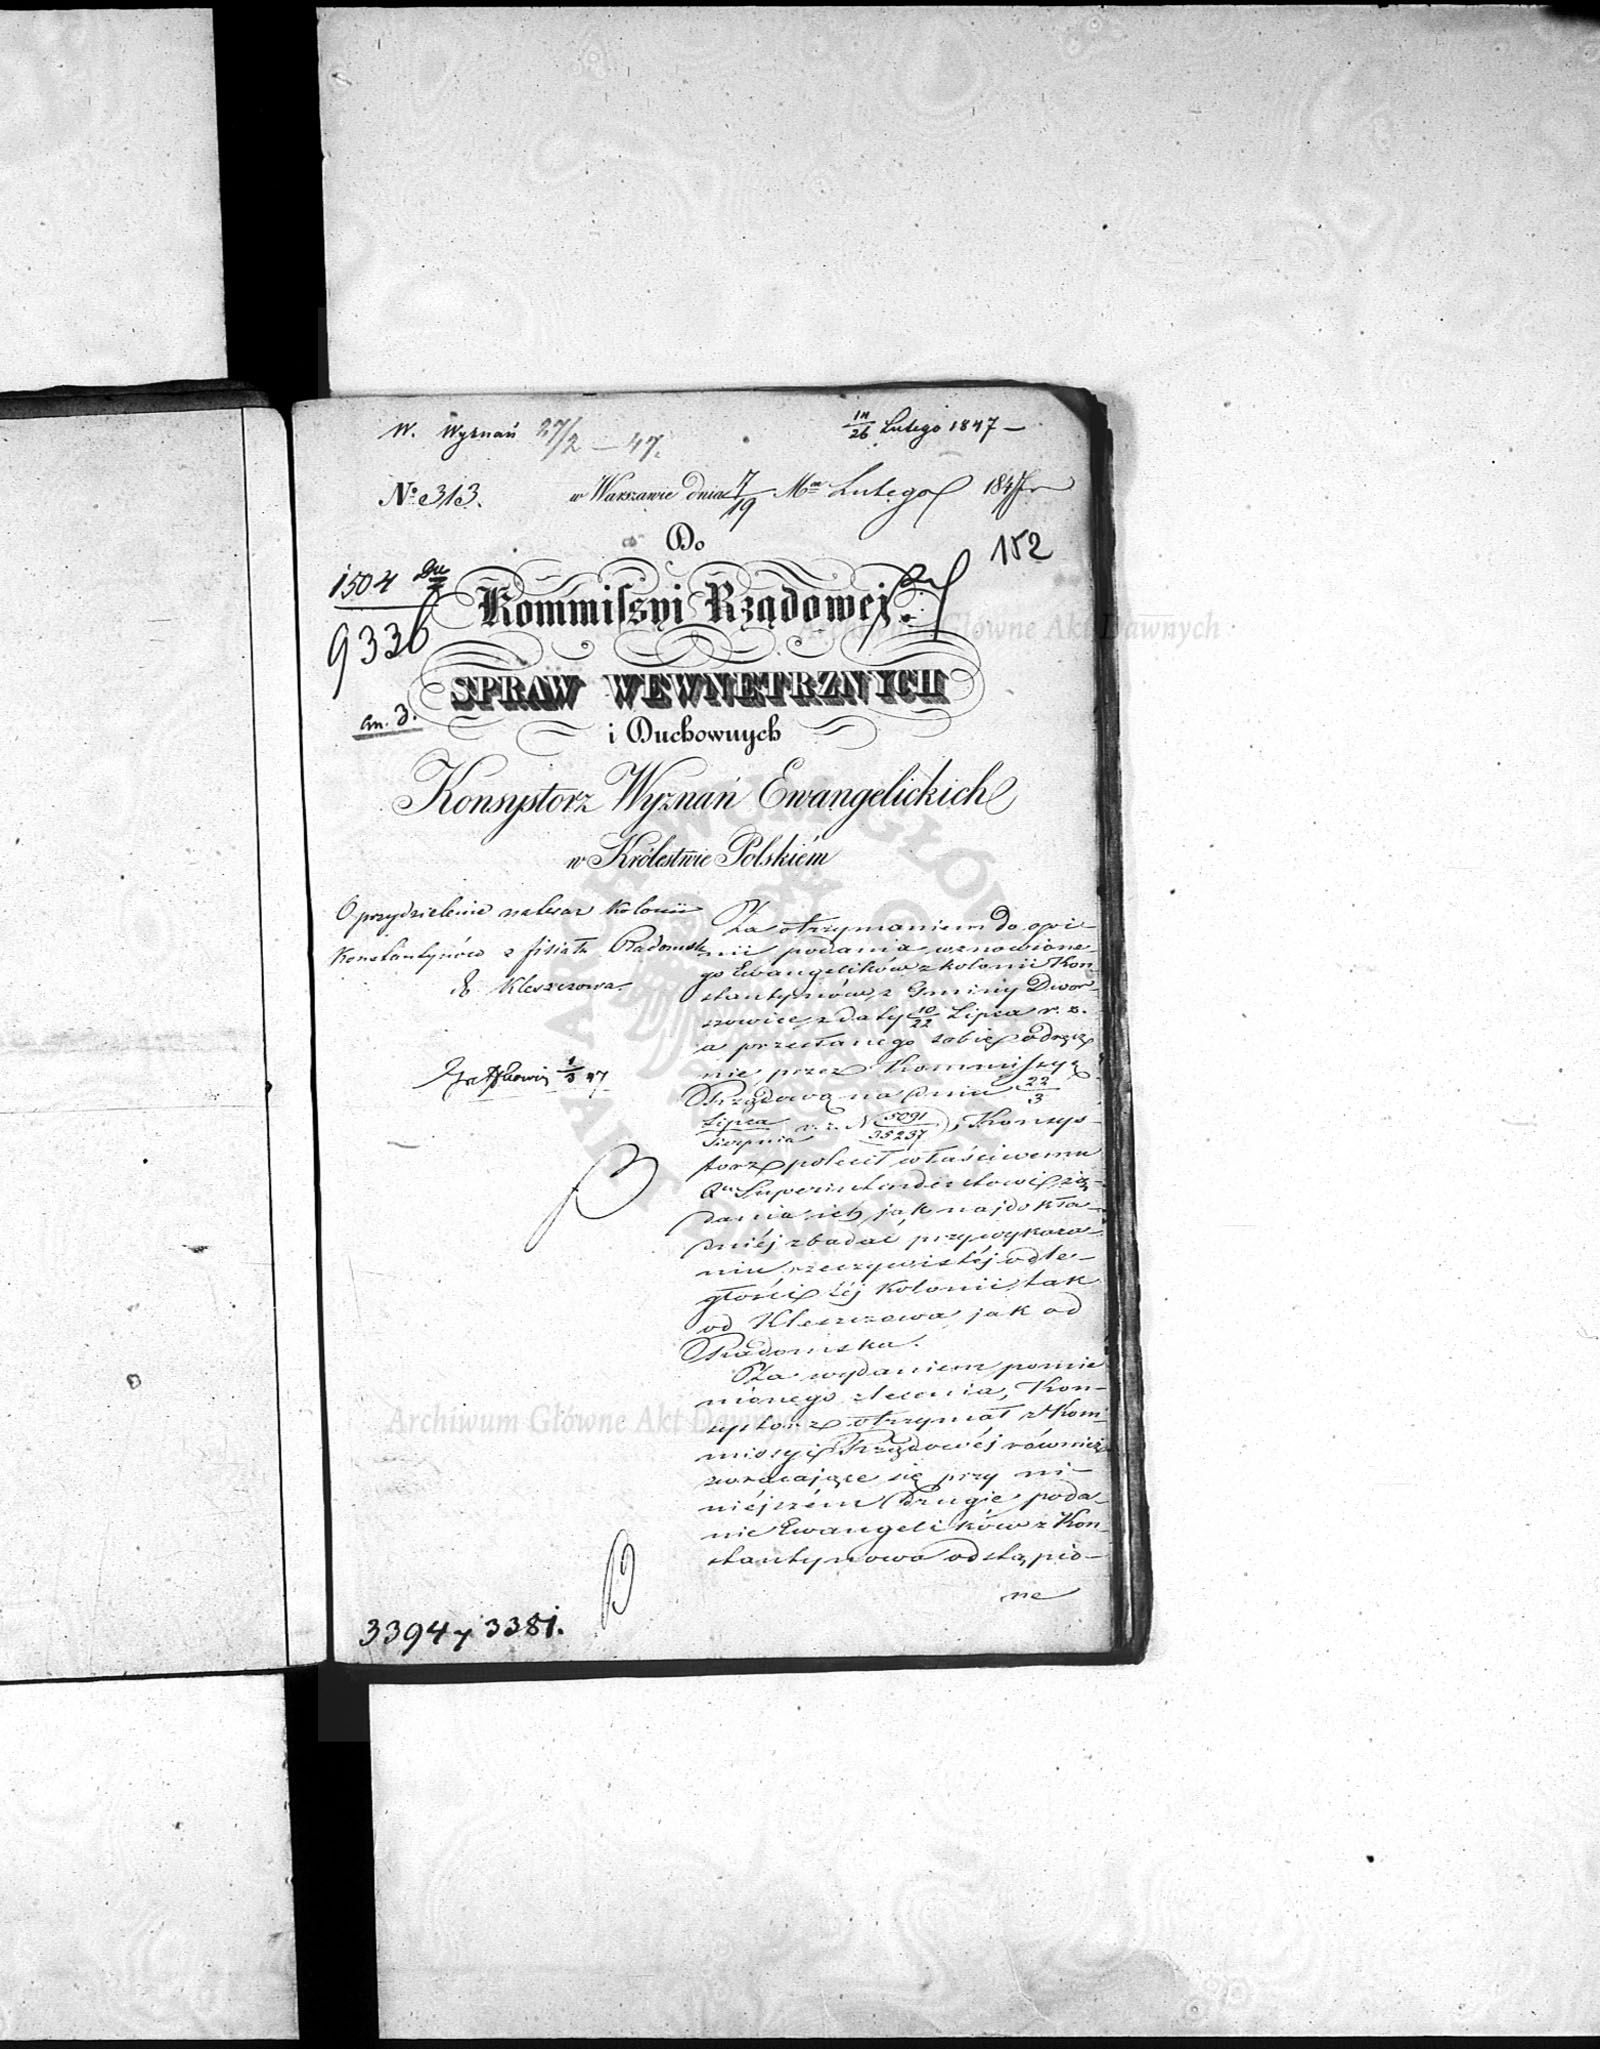 W. Wyznań 27/2 – 47.
14/26 Lutego 1847 –
No 313.
w Warszawie dnia 7/19 Mca Lutego 1847 r
152
Do
1504
9336
Kommissyi Rządowej
SPRAW WEWNĘTRZNYCH
An. 3.
i Duchownych
Konsystorz Wyznań Ewangelickich
w Królestwie Polskiém
O przydzielenie Kolonii
Konstantynów z filiału Radomsk
do Kleszczowa
1/3 47
Za otrzymaniem do opi-
nii podania wznowione-
go Ewangelików z kolonii Kon-
stantynów, z Gminy Dwor-
szowice, z daty 10/22 Lipca r. z.
a przesłanego sobie odręcz
nie przez Kommissyą
Rządową na dniu 22/3
Lipca/Sierpnia r. z. N 5091/35237, Konsys-
torz polecił właściwemu
Superintendentowi żą-
dania ich jak najdokła-
dniéj zbadać przy wykaza-
niu rzeczywistéj odle-
głości téj Kolonii, tak
od Kleszczowa jak od
Radomska.
Za wydaniem pomie
nionego zlecenia, Kon-
systorz otrzymał z Kom-
missyi Rządowéj również
zwracające się przy ni-
niéjszém drugie poda-
nie Ewangelików z Kon-
stantynowa odstąpio-
ne
3394 y 3381.
Archiwum Główne Akt Dawnych
Archiwum Główne Akt Dawnych